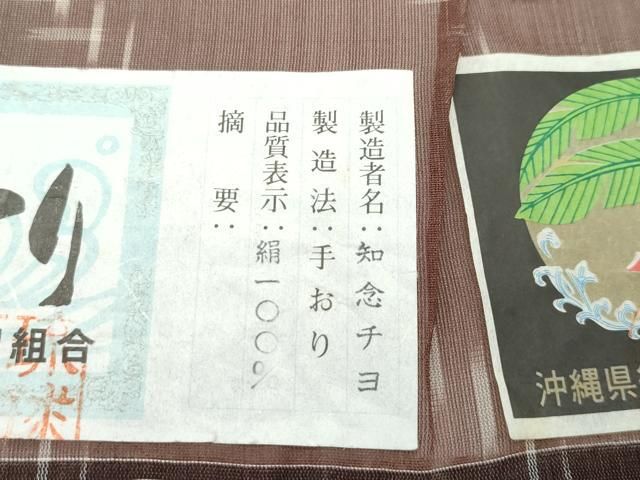 製造者名：知念チヨ
製造法：手おり
品質表示：絹一〇〇%
摘要：
り
組合
沖縄県